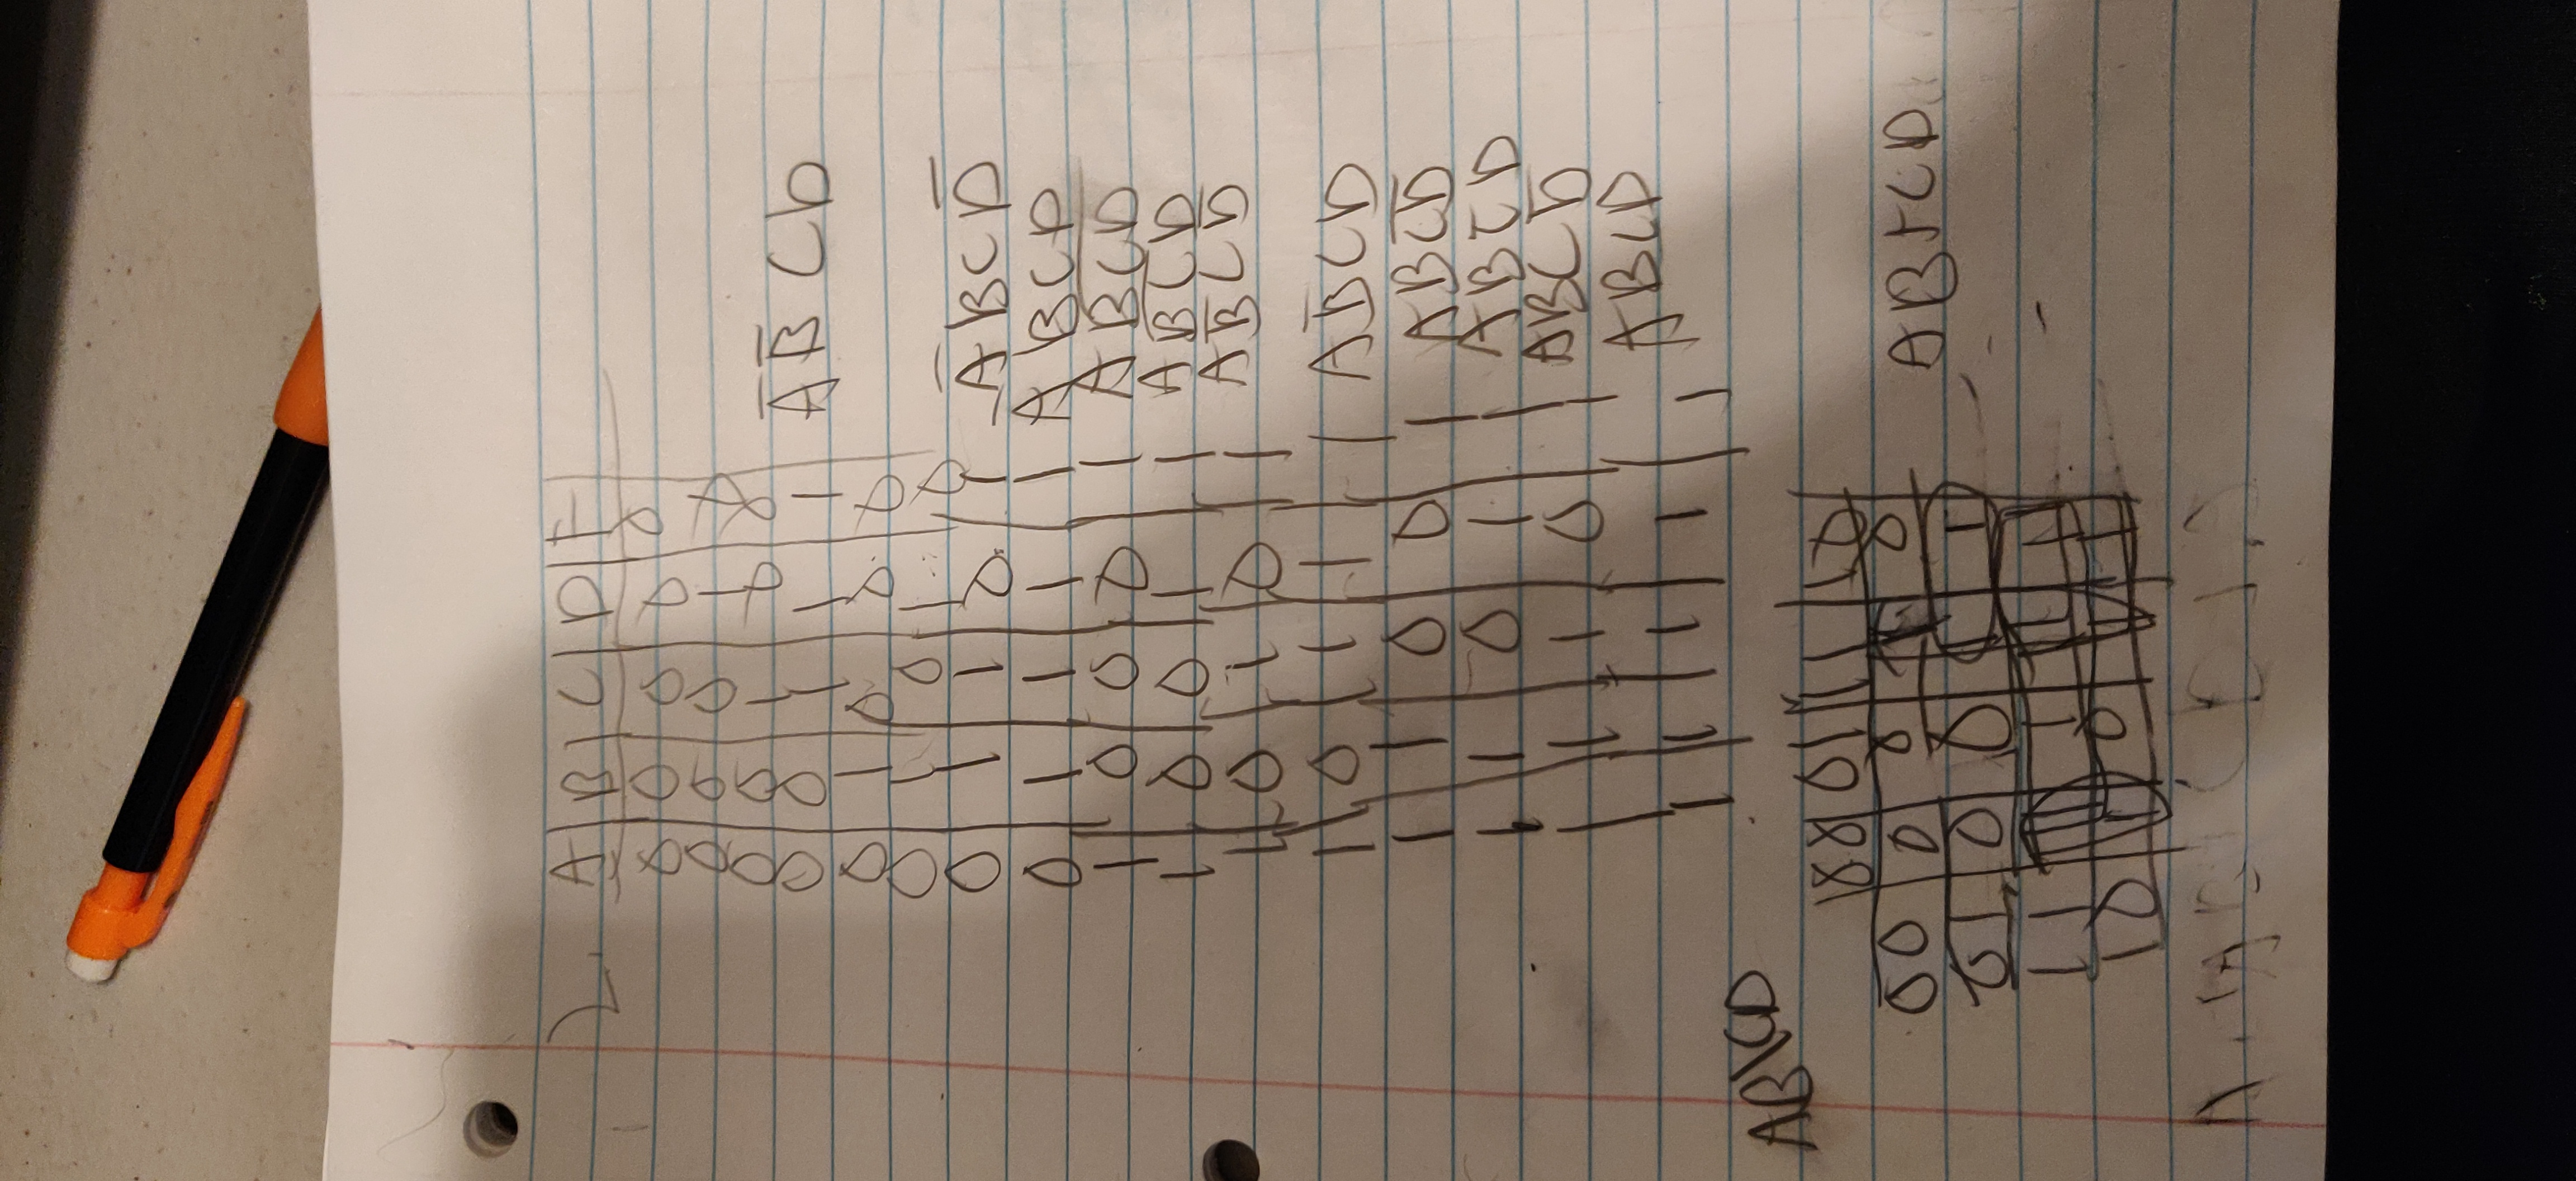 2. A B C D F
0 0 0 0 0
0 0 0 1 0
0 0 1 0 0
0 0 1 1 1 A̅ B̅ C D
0 1 0 0 0
0 1 0 1 0
0 1 1 0 1 A̅ B C D̅
0 1 1 1 1 A B C D
1 0 0 0 1 A B̅ C̅ D̅
1 0 0 1 1 A B̅ C̅ D
1 0 1 0 1 A B̅ C D̅
1 0 1 1 1 A B̅ C D
1 1 0 0 1 A B C̅ D̅
1 1 0 1 1 A B C̅ D
1 1 1 0 1 A B C D̅
1 1 1 1 1 A B C D
AB\CD
00 01 11 10
00 0 0 1 0 AB+CD
01 0 0 1 1
11 1 1 1 1
10 1 0 1 1